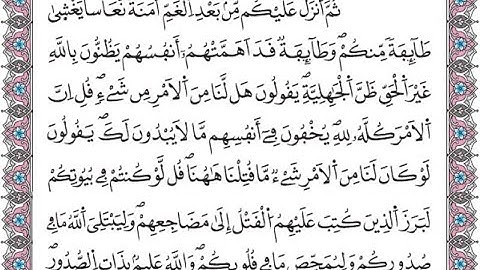 ثُمَّ أَنزَلَ عَلَيْكُم مِّنۢ بَعْدِ اِ۬لْغَمِّ أَمَنَةٗ نُّعَاسٗا يَغْش۪يٰ
طَآئِفَةٗ مِّنكُمْۖ وَطَآئِفَةٞ قَدَ اَهَمَّتْهُمُۥٓ أَنفُسُهُمْ يَظُنُّونَ بِاللَّهِ
غَيْرَ اَ۬لْحَقِّ ظَنَّ اَ۬لْجَٰهِلِيَّةِۖ يَقُولُونَ هَل لَّنَا مِنَ اَ۬لَامْرِ مِن شَےْءٖۖ قُلِ اِنَّ
اَ۬لَامْرَ كُلَّهُۥ لِلهِۖ يُخْفُونَ فِےٓ أَنفُسِهِم مَّا لَا يُبْدُونَ لَكَۖ يَقُولُونَ
لَوْ كَانَ لَنَا مِنَ اَ۬لَامْرِ شَےْءٞ مَّا قُتِلْنَا هَٰهُنَاۖ قُل لَّوْ كُنتُمْ فِے بُيُوتِكُمْ
لَبَرَزَ اَ۬لذِينَ كُتِبَ عَلَيْهِمُ اُ۬لْقَتْلُ إِلَىٰ مَضَاجِعِهِمْۖ وَلِيَبْتَلِيَ اَ۬للَّهُ مَا فِے
صُدُورِكُمْ وَلِيُمَحِّصَ مَا فِے قُلُوبِكُمْۖ وَاللَّهُ عَلِيمُۢ بِذَاتِ اِ۬لصُّدُورِۖ